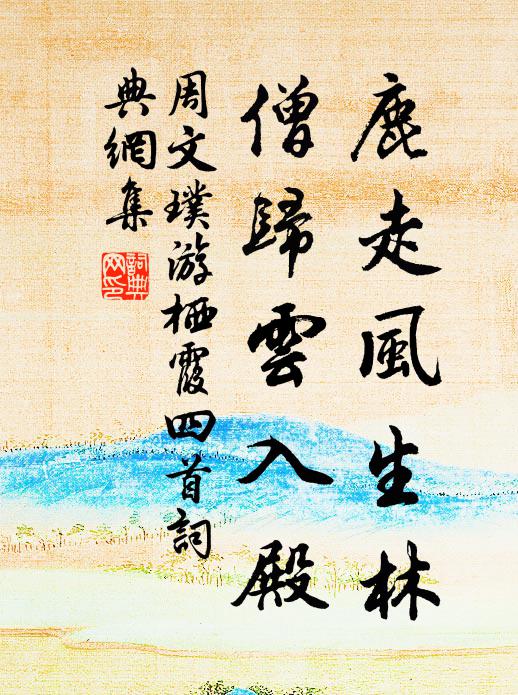 鹿走風生林
僧歸雲入殿
周文璞游栖霞四首詞
典網集
詞典網印